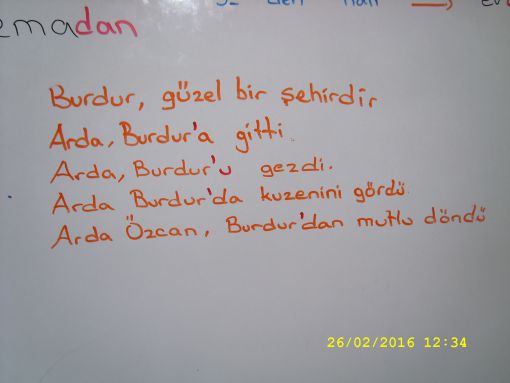 emadan
Burdur, güzel bir şehirdir
Arda, Burdur'a gitti.
Arda, Burdur'u gezdi.
Arda Burdur'da kuzenini gördü
Arda Özcan, Burdur'dan mutlu döndü
26/02/2016 12:34